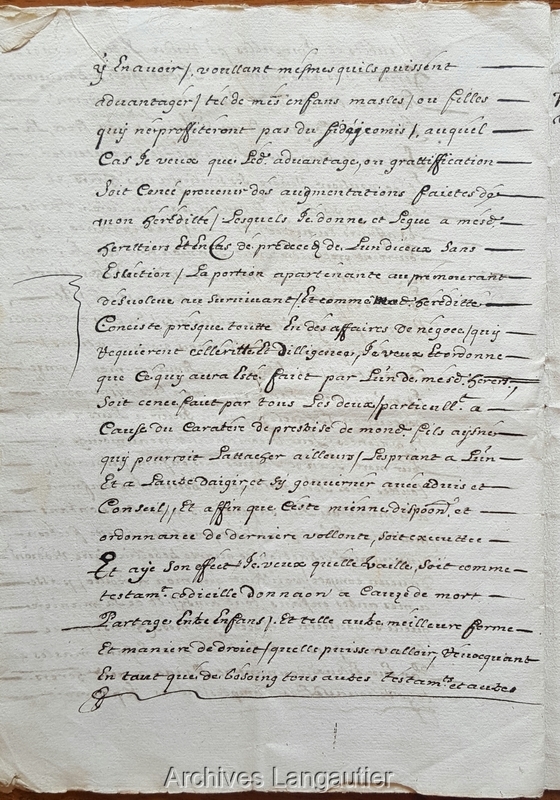 y En avoir /. voullant mesmes quils puissent
advantager / tel de mes enfans masles / ou filles
quy ne proffiteront pas du fideycomis /. auquel
Cas Je veux que Led. advantage, ou grattiffication
Soit Cencé provenir des augmentations faictes de
mon héréditté / Lesquels Je donne et Legue a mesd.
herittiers Et En Cas de predecez de Lun diceux Sans
Eslection / La portion apartenante au premourant
desvoleue au Survivant / Et comme mad. héréditte
Conciste presque toutte En des affaires de négoce / quy
requierent cellerittét dilligence, Je veux Et ordonne
que Ce quy aura Esté faict par L'un de mesd. heren
Soit cencé faict par tous Les deux / particullt. a
Cause du Caratère de prestre de mond. fils aysné
quy pourroit Lattacher ailleurs / Les priant a L'un
Et a Lautre daigir, et Sy gouverner avec advis et
Conseil /. Et affin que Ceste mienne dispoon. et
ordonnance de dernière vollonté, soit executtée
Et aye Son effect Je veux quelle Vaille, Soit comme
testamt. codicille donnaon a Cauze de mort
Partage Entre Enfans /. Et telle autre meilleure forme
Et maniere de droict / quelle puisse valloir, Revocquant
En tant que de besoing tous autres testamts. et autres
Archives Langautier